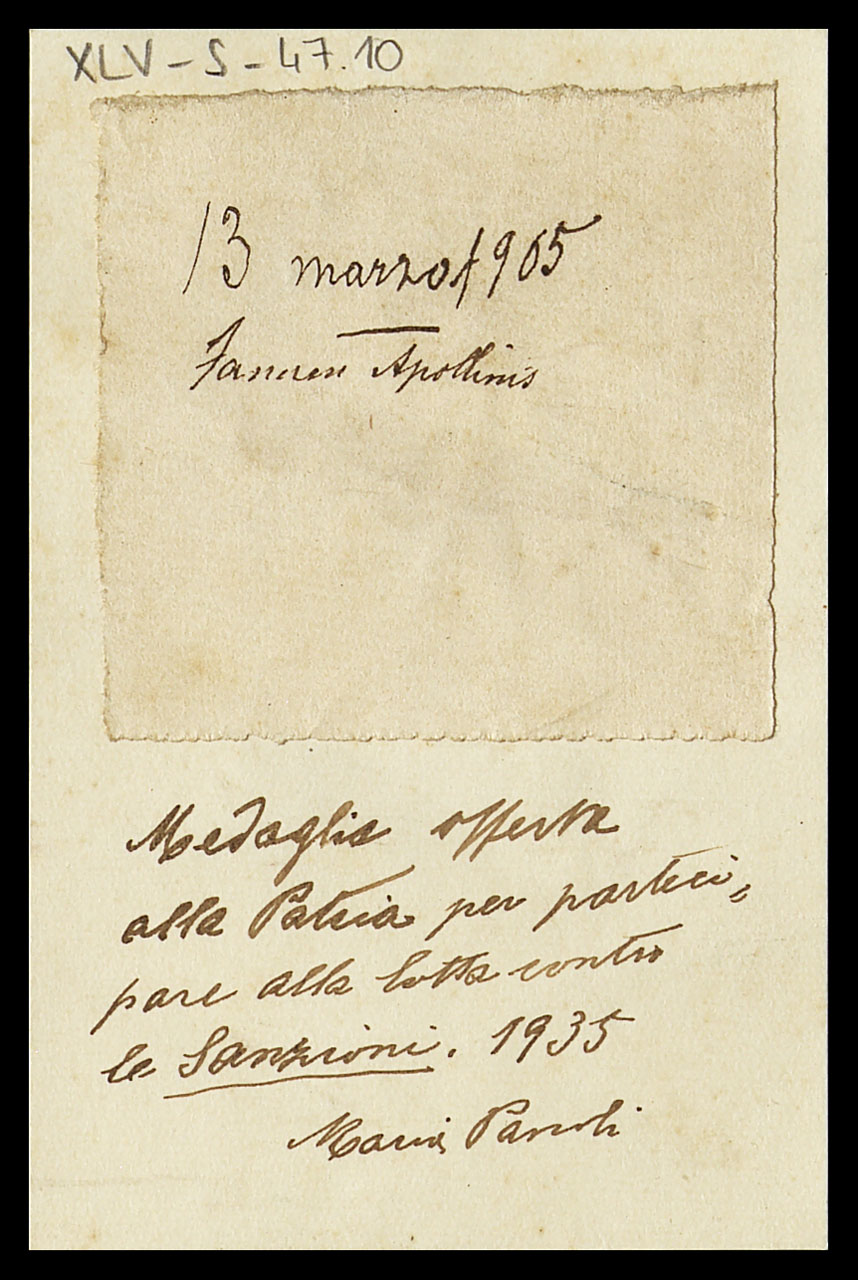 XLV - S - 47.10
13 marzo 1905
Fanum Apollinis
Medaglia offerta
alla Patria per parteci„
pare alla lotta contro
le Sanzioni. 1935
Maria